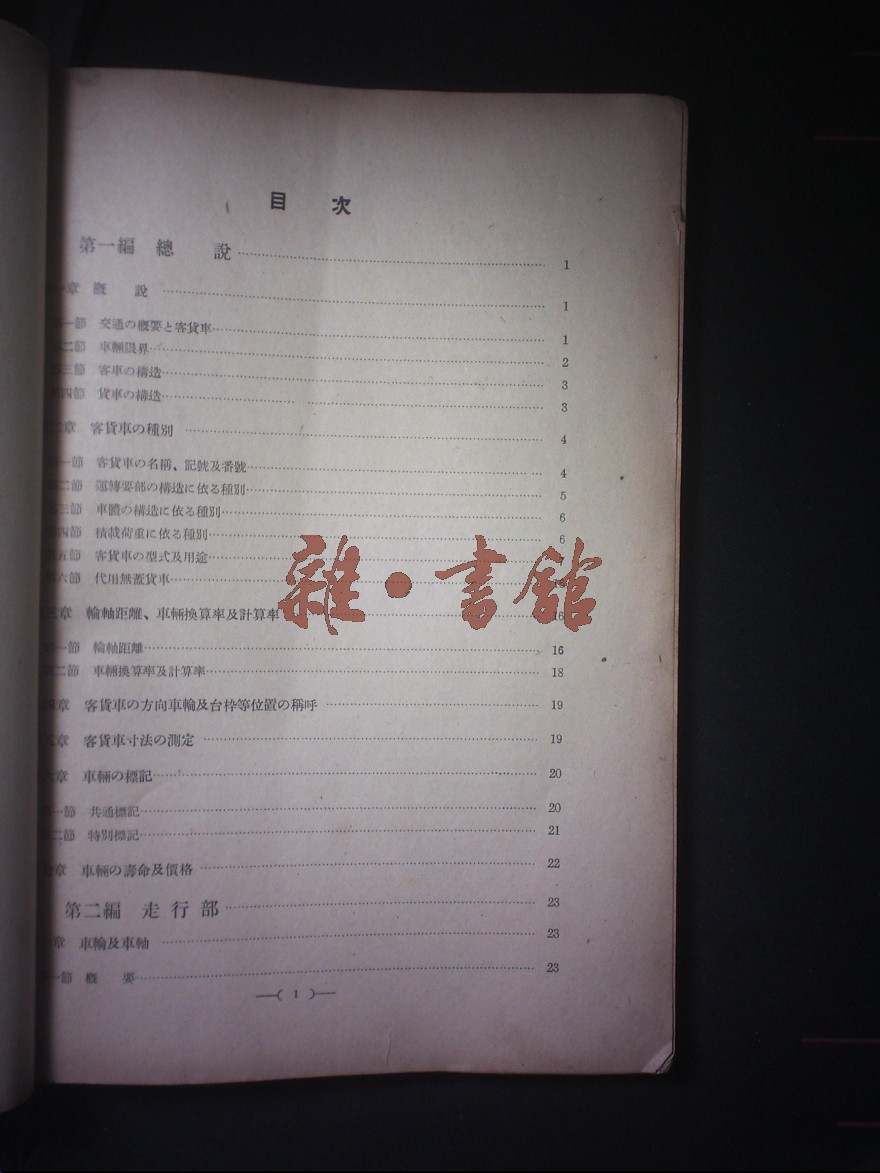 目 次
第一編 總 說 1
一章 概 說 1
第一節 交通の概要と客貨車 1
第二節 車輛限界 2
第三節 客車の構造 3
第四節 貨車の構造 3
二章 客貨車の種別 4
第一節 客貨車の名稱、記號及番號 4
第二節 運轉要部の構造に依る種別 5
第三節 車體の構造に依る種別 6
第四節 積載荷重に依る種別 6
第五節 客貨車の型式及用途
第六節 代用無蓋貨車
雜·書館
三章 輪軸距離、車輛換算率及計算率 16
第一節 輪軸距離 16
第二節 車輛換算率及計算率 18
四章 客貨車の方向車輪及台枠等位置の稱呼 19
五章 客貨車寸法の測定 19
六章 車輛の標記 20
第一節 共通標記 20
第二節 特別標記 21
七章 車輛の壽命及價格 22
第二編 走行部 23
一章 車輪及車軸 23
第一節 概 要 23
—( 1 )—